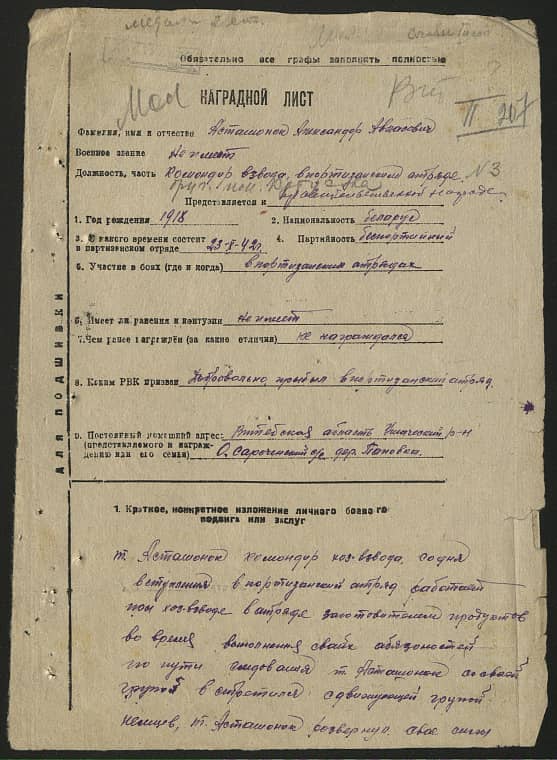 Медаль
Обязательно все графы заполнять полностью
НАГРАДНОЙ ЛИСТ
II 207
Фамилия, имя и отчество Асташонок Александр
Военное звание Не имеет
Должность, часть Командир взвода, в портизанским атряде N 3
Представляется к правительственной награде
1. Год рождения 1918 2. Национальность беларус
3. С какого времени состоит в партизанском отряде 23-X-42г. 4. Партийность беспортийный
5. Участие в боях (где и когда) в портизанским атрядах
6. Имеет ли ранения и контузии не имеет
7. Чем ранее награждён (за какие отличия) не награждался
8. Каким РВК призван Добровально прыбыл в портизанский атряд
9. Постоянный домашний адрес: Витебская область Ушачский р-н
(представляемого к награждению или его семьи) с/с дер. Пановка.
Для подшивки
1. Краткое, конкретное изложение личного боевого
подвига или заслуг
т. Асташонок командир хоз-взвода, содня
вступления в портизанский атряд работает
пом хоз-взводе в атряде заготовителем продуктов
во время выполнения своих абязоностей
по пути следования т. Асташонок со своей
групой встретился сдвигующей групой
немцев, т. Асташонок розвернул свое силы